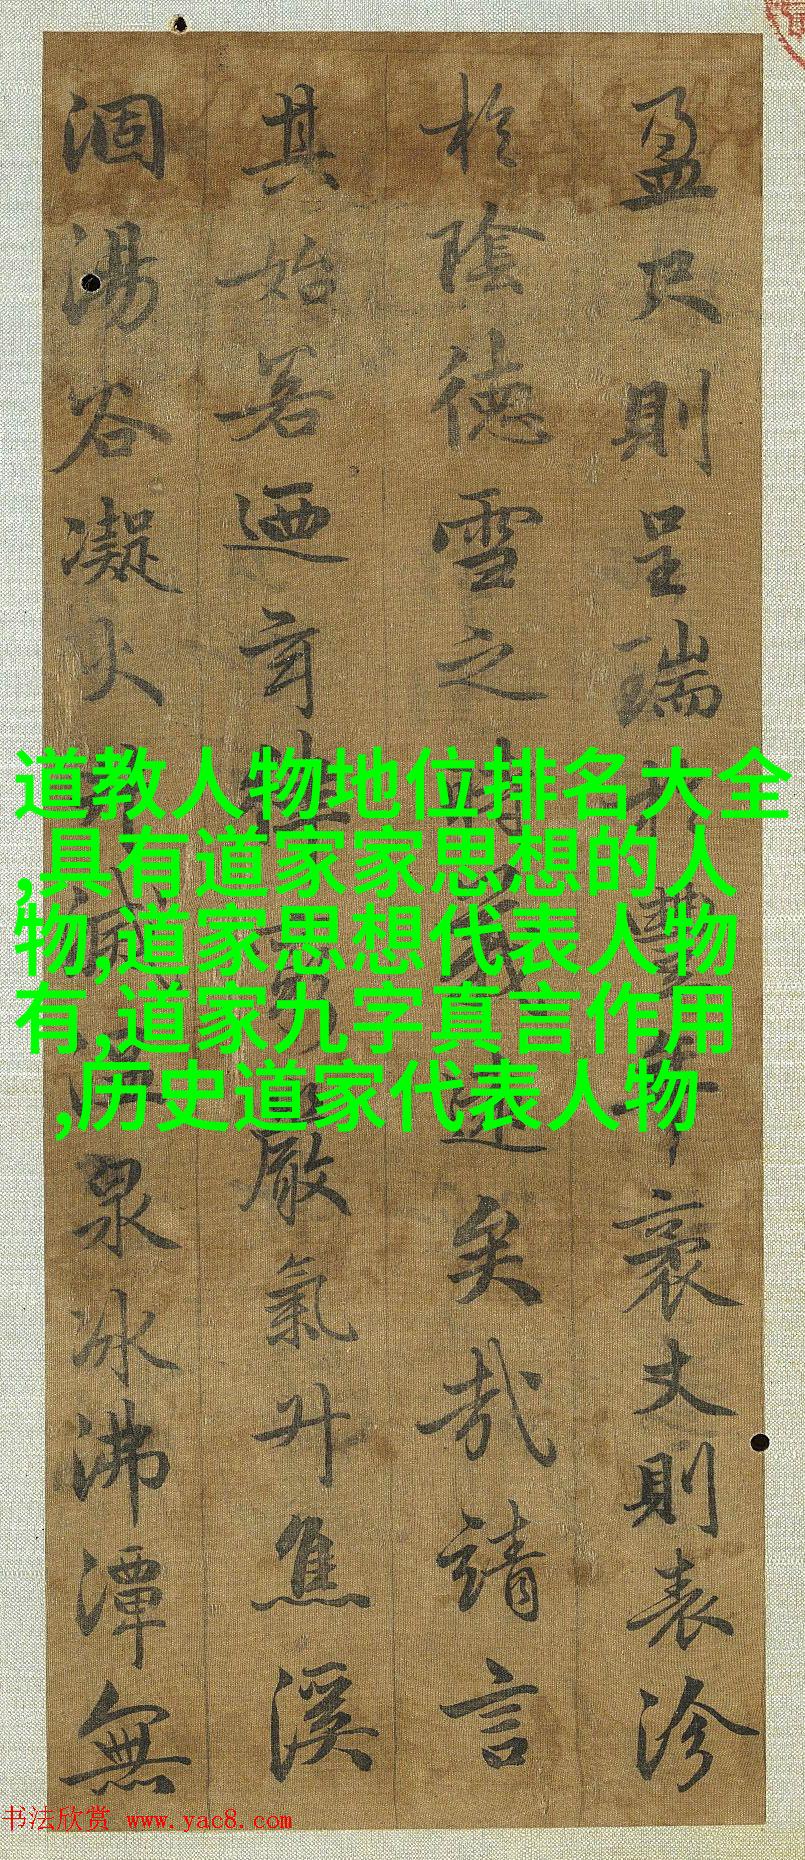 道教人物地位排名大全
,具有道家家思想的人
物,道家思想代表人物
有,道家九字真言作用
,历史道家代表人物
盈尺則呈瑞於豐年袤丈則表沴
於陰德雪之時義遠矣哉請言
其始若迺玄律窮嚴氣升焦溪
涸湯谷凝火井滅溫泉冰沸潭無
书法欣赏 www.yac8.com